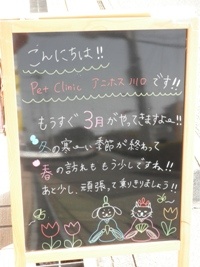 こんにちは!!
Pet Clinic アニホス川口です!!
もうすぐ3月がやってきますよー!!
冬の寒ーい季節が終わって
春の訪れももう少しですね!!
あと少し、頑張って乗りきりましょう!!